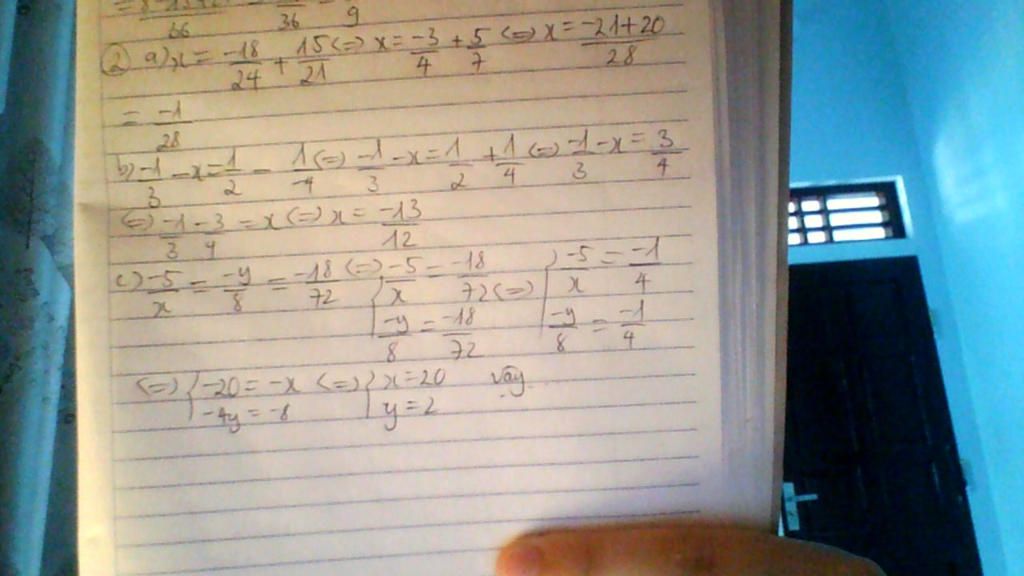 36 9
② a) x = -18/24 + 15/21 (=) x = -3/4 + 5/7 (=) x = -21+20/28
= -1/28
b) -1/3 - x = 1/2 - 1/-4 (=) -1/3 - x = 1/2 + 1/4 (=) -1/3 - x = 3/4
(=) -1/3 - 3/4 = x (=) x = -13/12
c) -5/x = -y/8 = -18/72 (=) { -5/x = -18/72 (=) { -5/x = -1/4
-y/8 = -18/72 -y/8 = -1/4
(=) { -20 = -x (=) { x = 20 vậy...
-4y = -8 y = 2